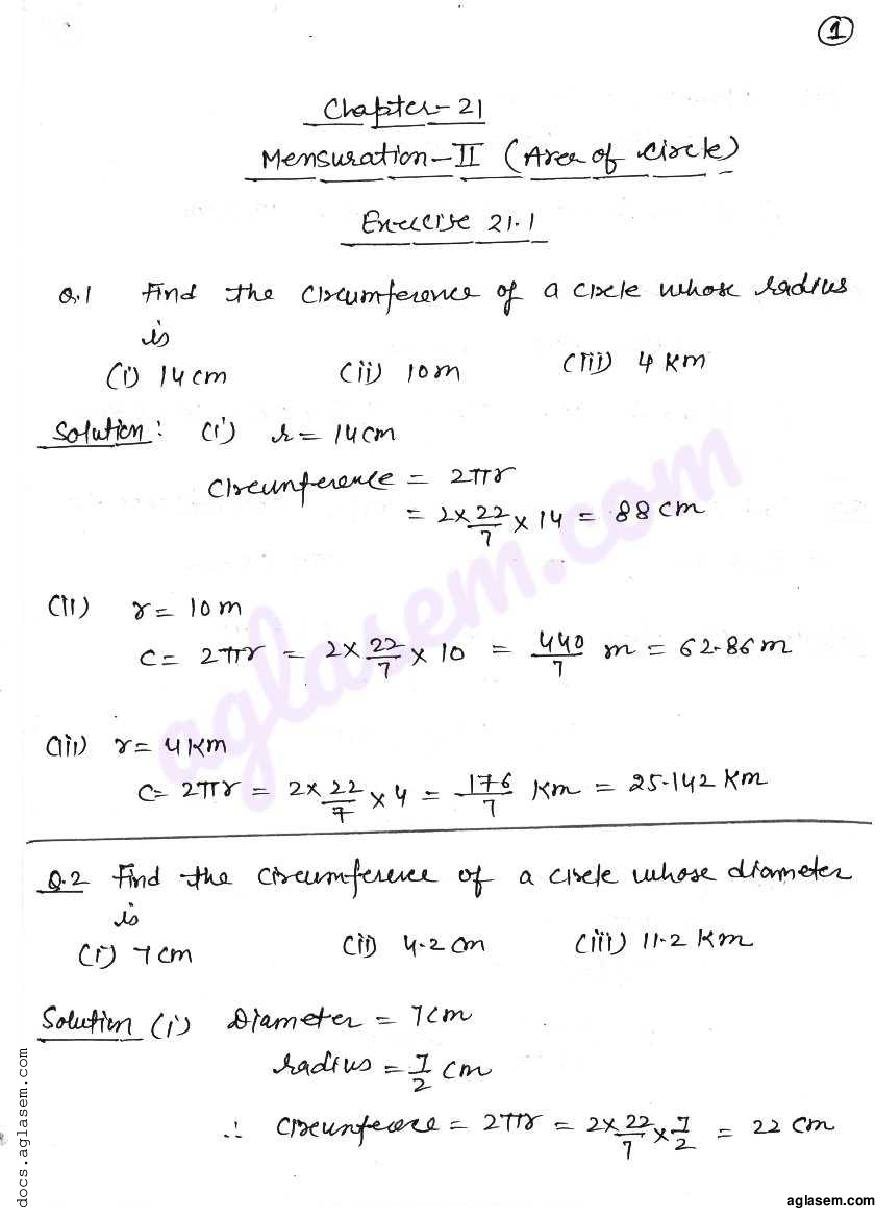 1
Chapter-21
Mensuration-II (Area of Circle)
Exercise 21.1
Q.1 Find the circumference of a circle whose radius
is
(i) 14 cm (ii) 10 m (iii) 4 Km
Solution: (i) r = 14 cm
Circumference = 2πr
= 2 × 22/7 × 14 = 88 cm
(ii) r = 10 m
C = 2πr = 2 × 22/7 × 10 = 440/7 m = 62.86 m
(iii) r = 4 Km
C = 2πr = 2 × 22/7 × 4 = 176/7 Km = 25.142 Km
Q.2 Find the circumference of a circle whose diameter
is
(i) 7 cm (ii) 4.2 cm (iii) 11.2 Km
Solution (i) Diameter = 7 cm
radius = 7/2 cm
∴ Circumference = 2πr = 2 × 22/7 × 7/2 = 22 cm
aglasem.com
docs.aglasem.com
aglasem.com